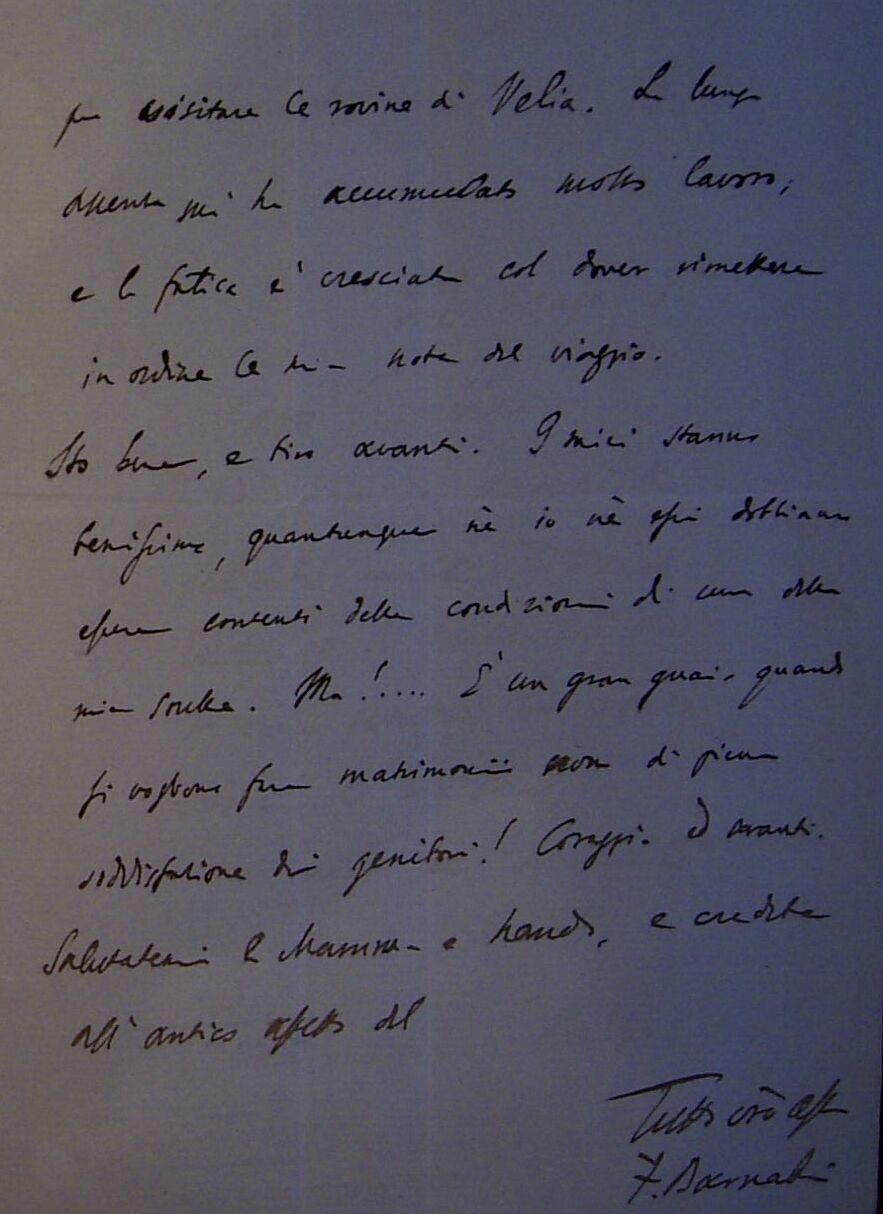 per visitare le rovine di Velia. La lunga
assenza mi ha accumulato molto lavoro,
e la fatica è cresciuta col dover rimettere
in ordine le mie note del viaggio.
Sto bene, e tiro avanti. I miei stanno
benissimo, quantunque nè io nè essi dobbiamo
essere contenti delle condizioni di una delle
mie sorelle. Ma!.... E' un gran guaio quando
si vogliono fare matrimonii non di piena
soddisfazione dei genitori! Coraggio ed avanti.
Salutatemi la Mamma e, e credete
all'antico affetto del
Tutto vro aff
F. Barnabei